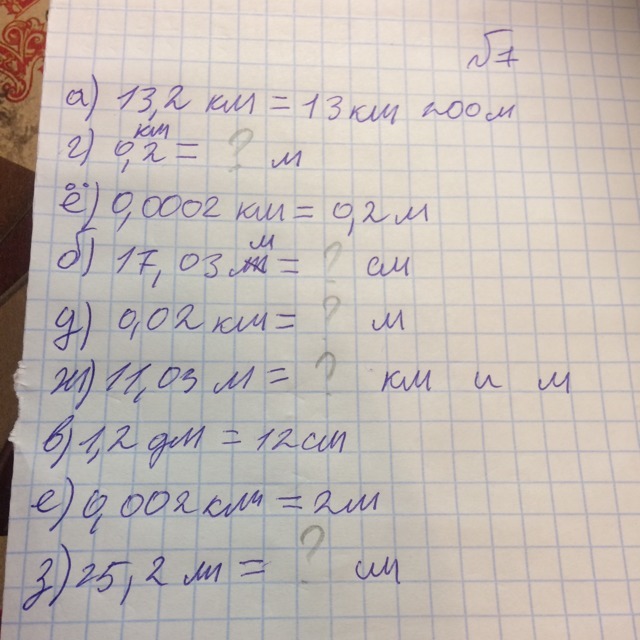 №7
а) 13,2 км = 13 км 200 м
г) 0,2 км = ? м
ё) 0,0002 км = 0,2 м
б) 17,03 м = ? см
д) 0,02 км = ? м
ж) 11,03 м = ? км и м
в) 1,2 дм = 12 см
е) 0,002 км = 2 м
з) 25,2 м = ? см